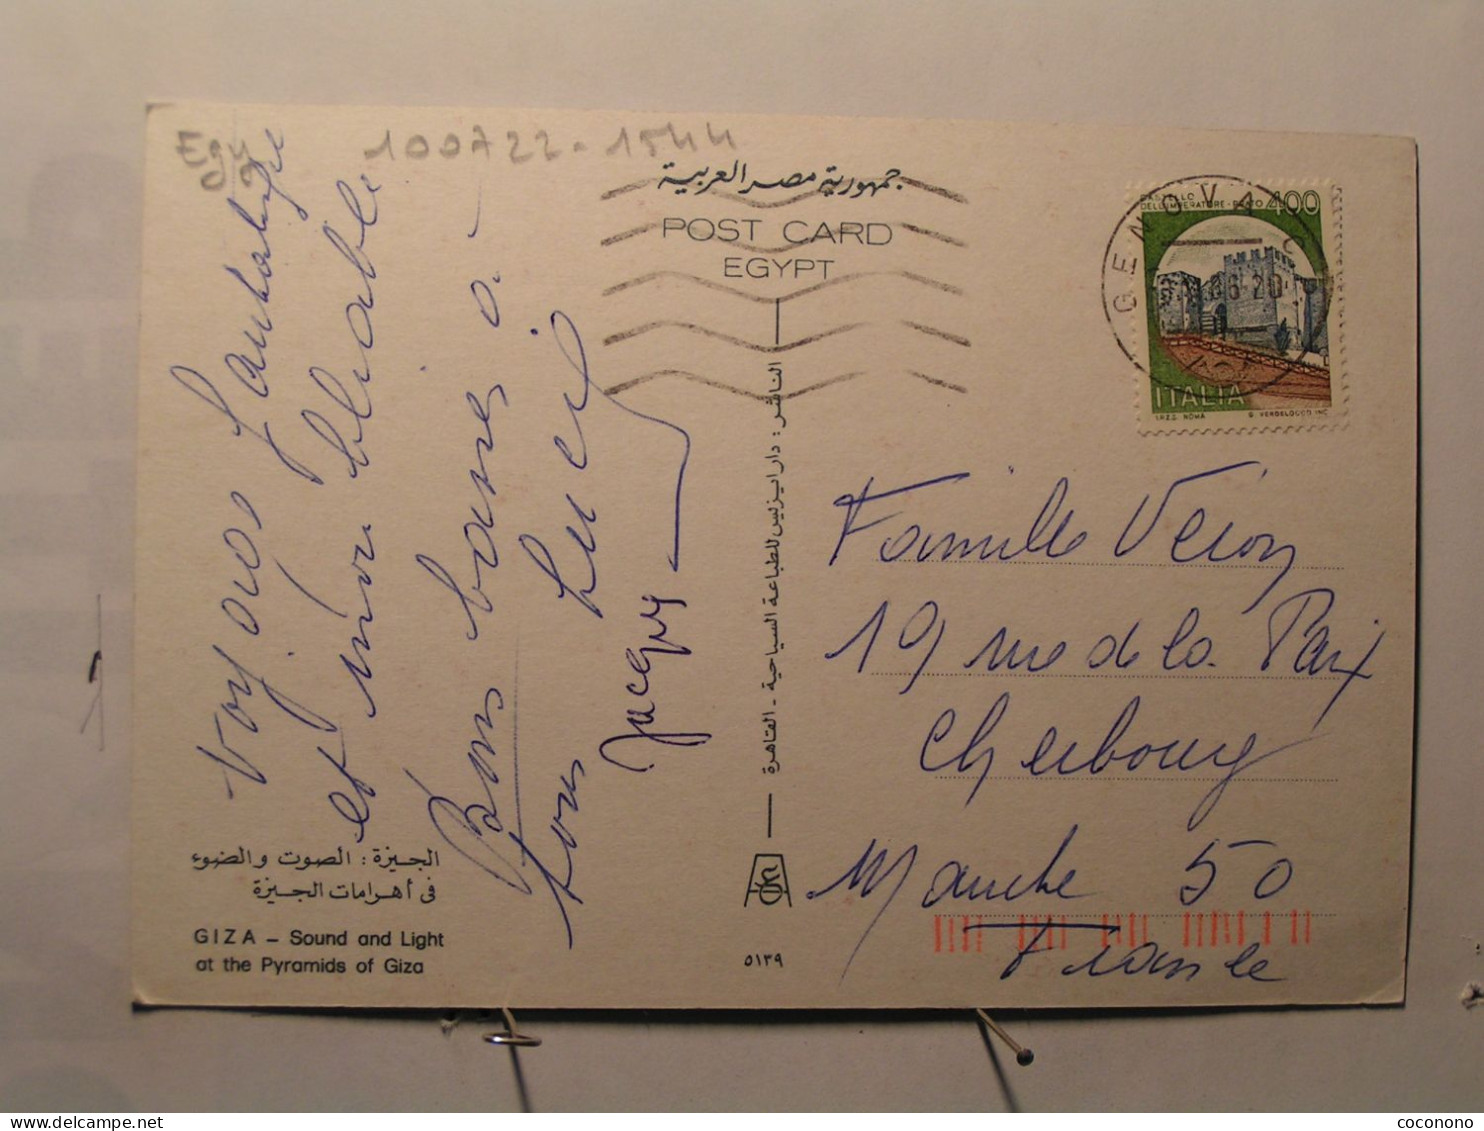 100722-1544
جمهورية مصر العربية
POST CARD
EGYPT
CASTELLO
DELL'IMPERATORE - PRATO 400
GENOVA
06-20
ITALIA
I.P.Z.S. ROMA
E. VERDELOCCO INC.
Voyage fantastique
et inoubliable
Bons baisers à
tous Lucie
Jacquy
الناشر : دار ايزيس للطباعة السياحية - القاهرة
Famille Veron
19 rue de la Paix
Cherbourg
Manche 50
France
الجيزة : الصوت والضوء
فى أهرامات الجيزة
GIZA – Sound and Light
at the Pyramids of Giza
٥١٣٩
coconono